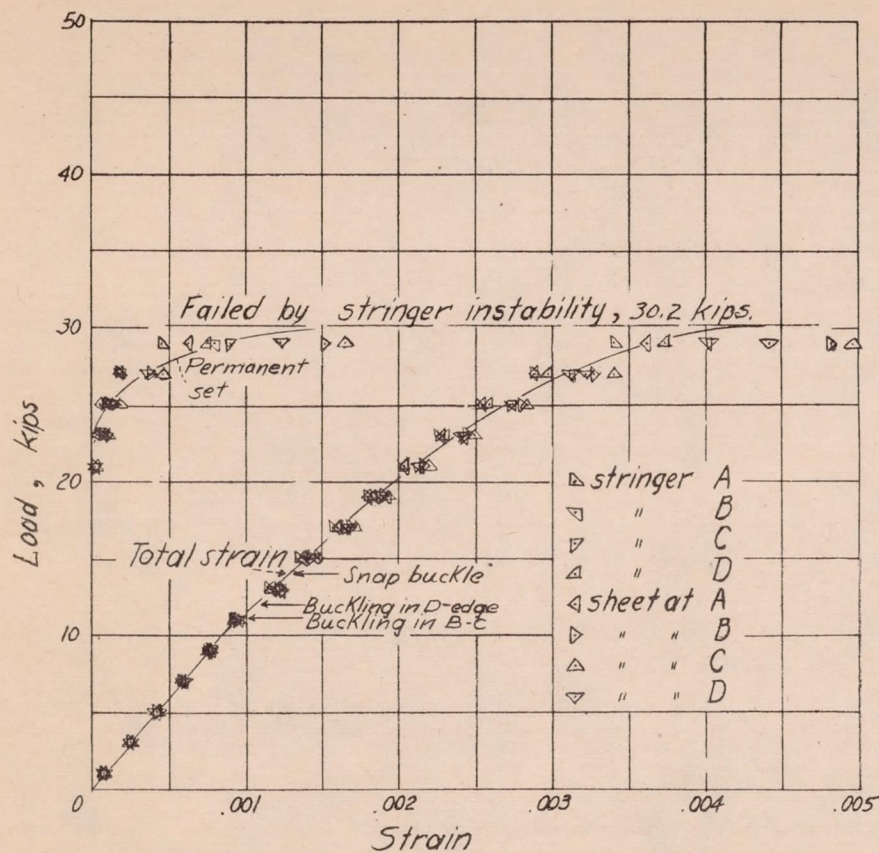 50
40
30
20
10
0
Load, kips
Failed by stringer instability, 30.2 kips.
Permanent
set
Total strain
Snap buckle
Buckling in D-edge
Buckling in B-C
stringer A
" B
" C
" D
sheet at A
" " B
" " C
" " D
.001
.002
.003
.004
.005
Strain